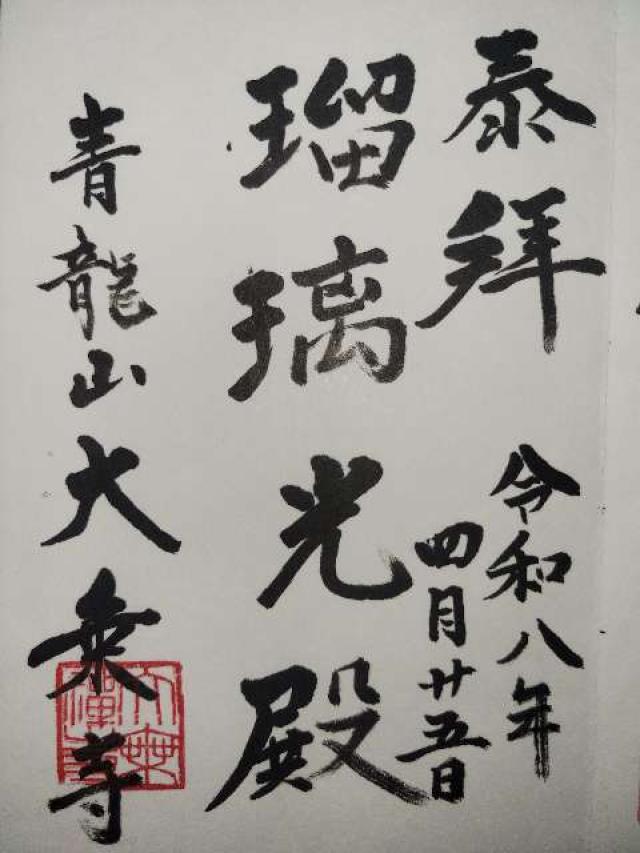 泰拝
令和八年
四月廿五日
瑠璃光殿
青龍山大乗寺